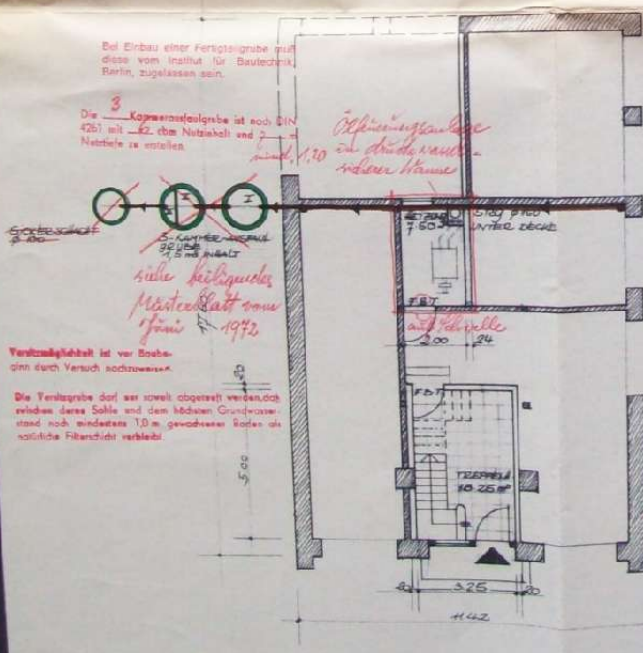 Bei Einbau einer Fertigteilgrube muß
diese vom Institut für Bautechnik,
Berlin, zugelassen sein.
3
Die Kammerausfaulgrube ist nach DIN
4261 mit 12 cbm Nutzinhalt und m
Nutztiefe zu erstellen.
mind. 1,20
Ölfeuerungsanlage
in
sicherer Wanne
SICKERSCHACHT
I
I
HEIZUNG
7.50
STZG Ø 150
UNTER DECKE
3-KAMMER-AUSFAUL
GRUBE
1,5 m3 INHALT
siehe beiliegendes
Musterblatt vom
Juni 1972
FBT
auf Schwelle
2.00
24
Versitzmöglichkeit ist vor Baube-
ginn durch Versuch nachzuweisen.
Die Versitzgrube darf nur soweit abgeteuft werden, daß
zwischen deren Sohle und dem höchsten Grundwasser-
stand noch mindestens 1,0 m gewachsener Boden als
natürliche Filterschicht verbleibt.
20
FBT
5.00
18.25 m²
20
3.25
20
11.42